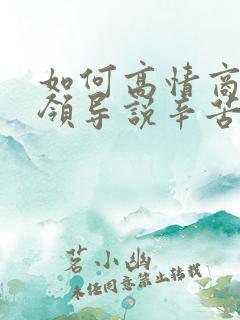 如何高情商
领导说辛苦
茗小幽
未经同意禁止转载